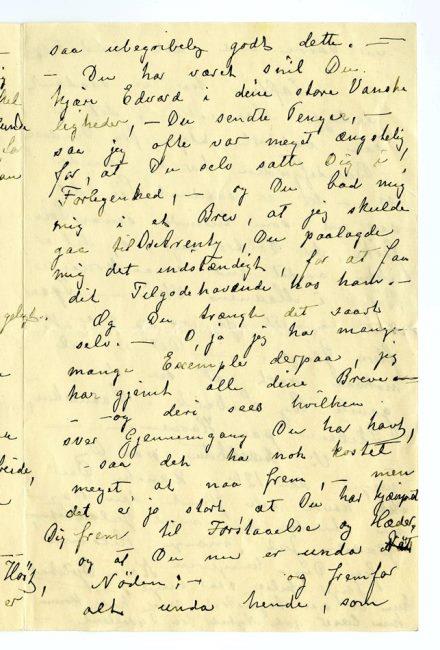 saa ubegribelig godt dette. —
— Du har været snil Du
kjære Edvard i dine store Vanske
ligheder, — Du sendte Penger, —
saa jeg ofte var meget ængstelig
for, at Du selv satte Dig i
Forlegenhed, — og Du bad mig
mig i et Brev, at jeg skulde
gaa til Diskrenty, Du paalagde
mig det indstændigt, for at faa
dit Tilgodehavende hos ham. —
Og Du trængte det saart
selv. — O, ja jeg har mange
mange Exemple derpaa, jeg
har gjemt alle dine Breve —
— og deri sees hvilken
svær Gjennemgang Du har havt,
— saa det har nok kostet
meget, at naa frem, — men
det er jo stort at Du har kjæmpet
Dig frem til Forstaaelse og Hæder,
og at Du nu er unda
Nøden; — og fremfor
alt unda hende, som